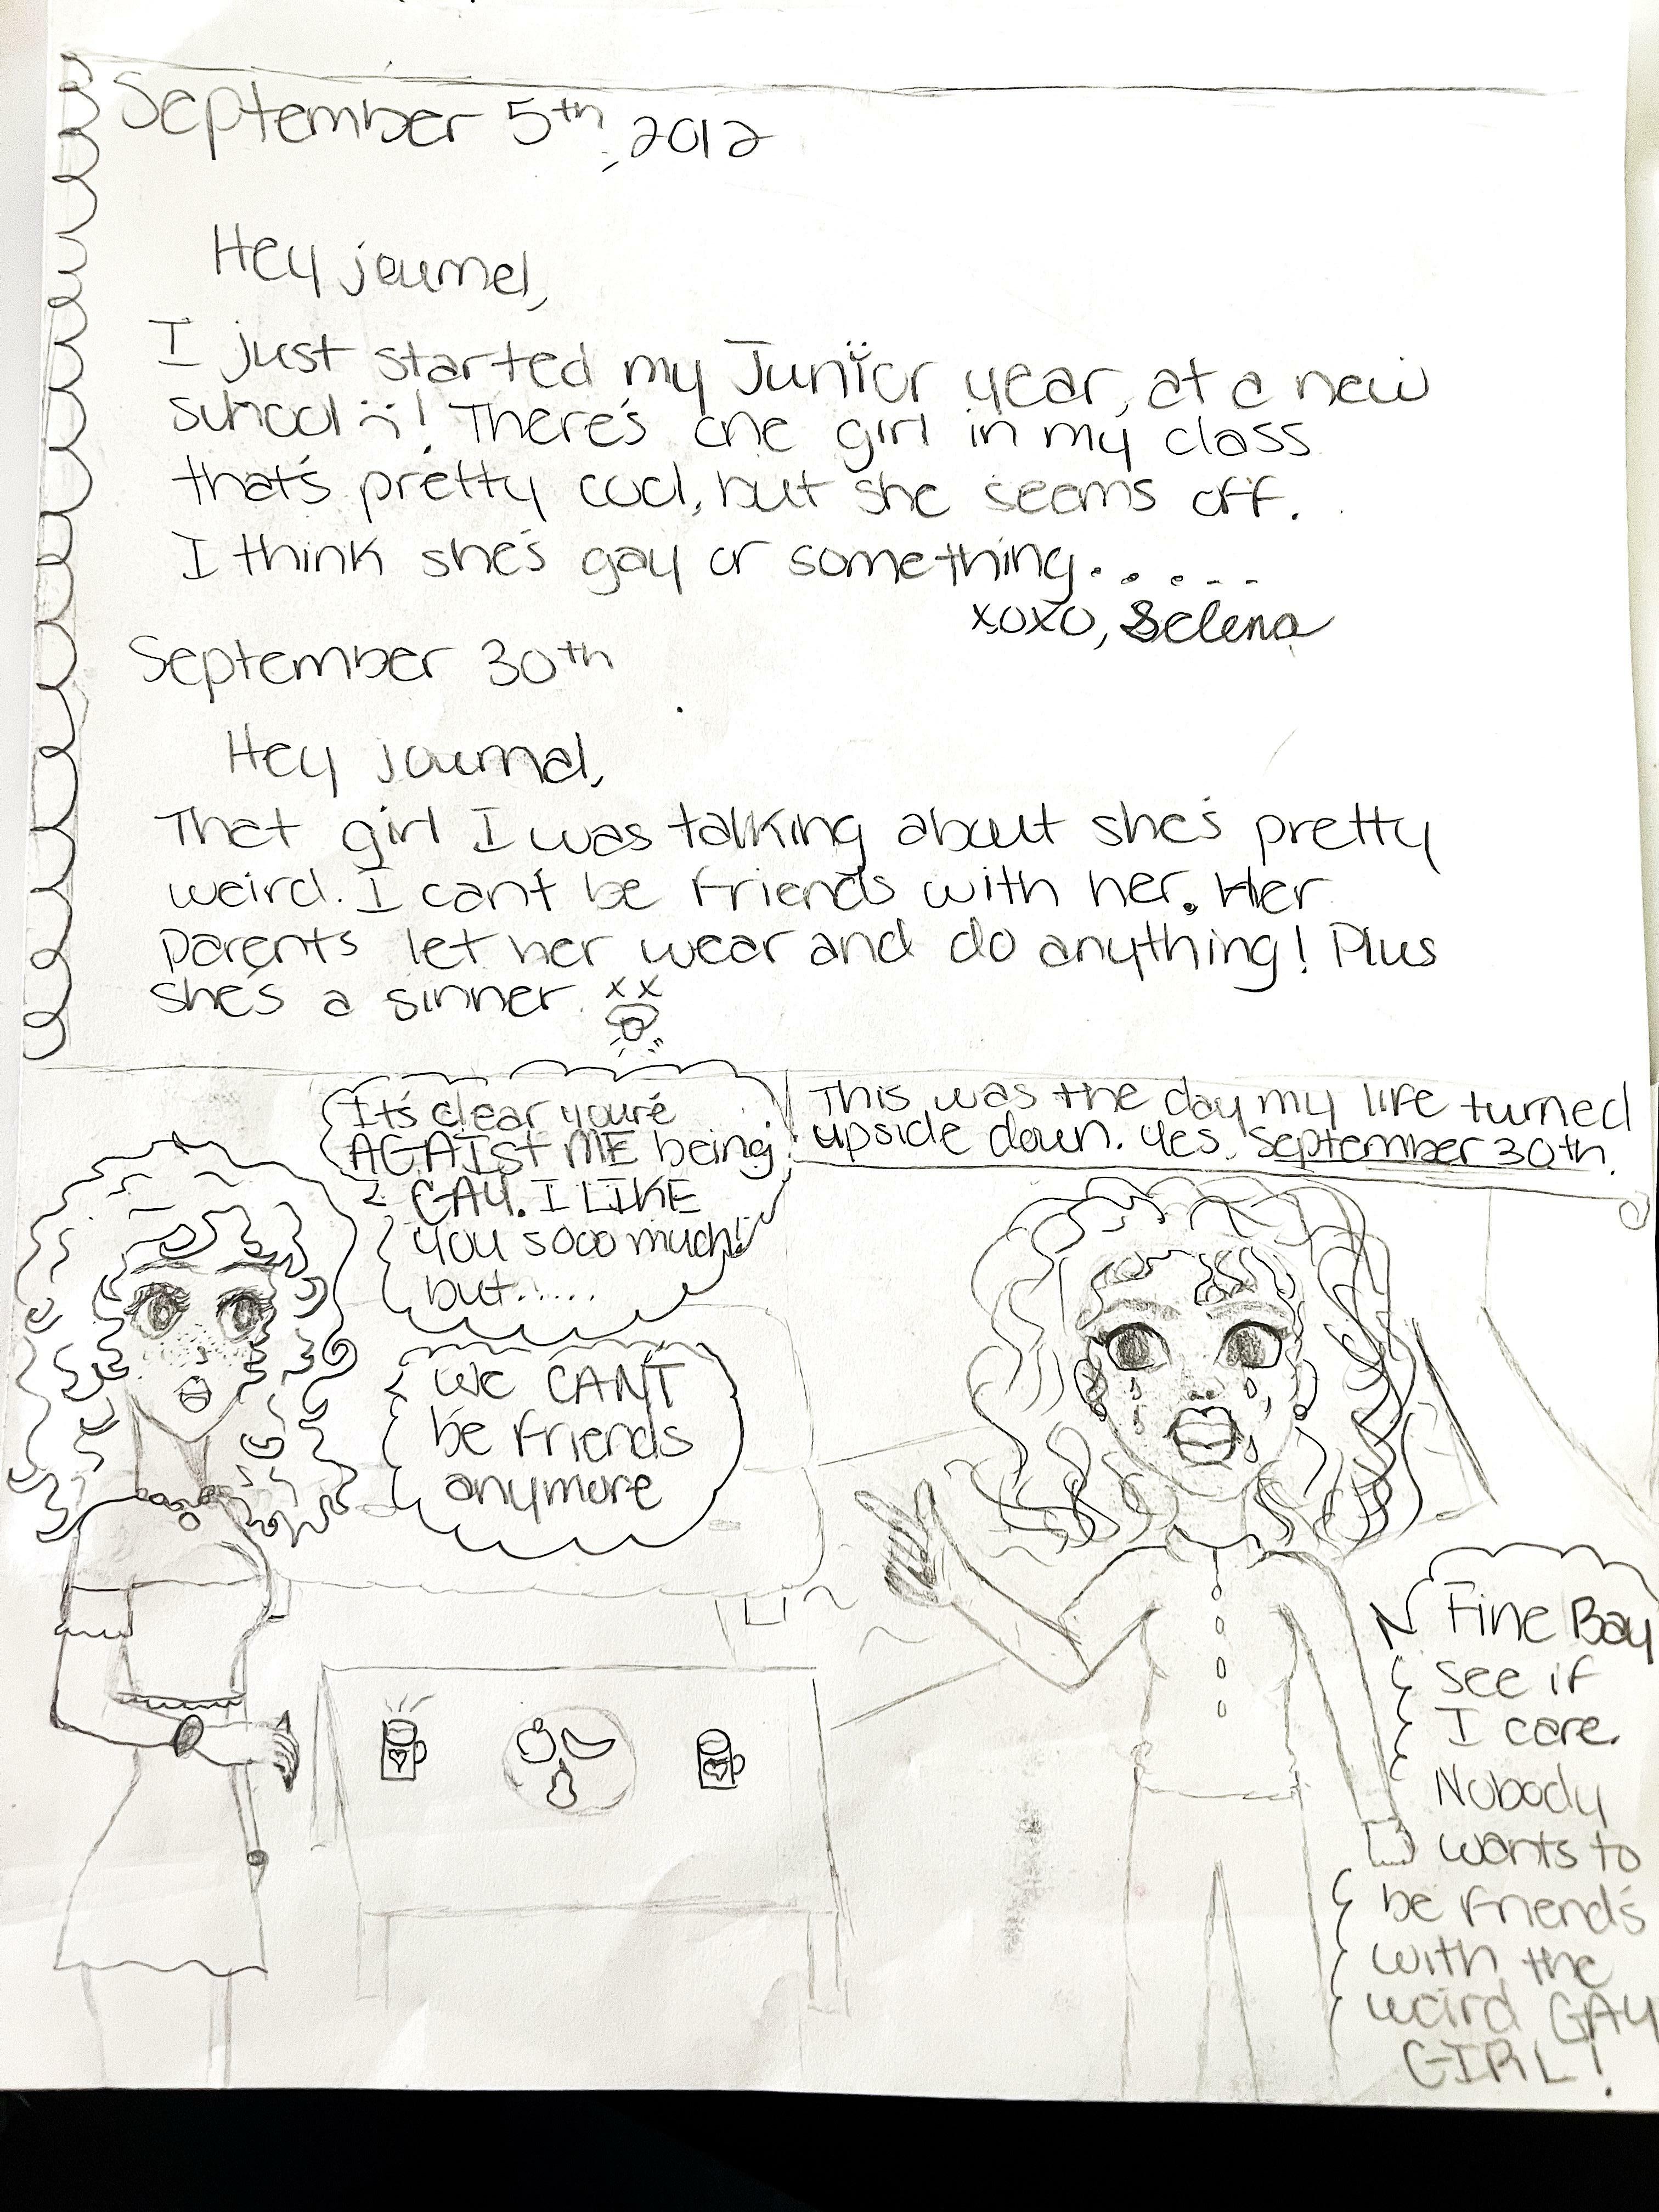 September 5th, 2012
Hey journel,
I just started my Junior year, at a new
school :(! There's one girl in my class
that's pretty cool, but she seems off.
I think she's gay or something......
xoxo, Selena
September 30th
Hey journal,
That girl I was talking about she's pretty
weird. I can't be friends with her. Her
parents let her wear and do anything! Plus
she's a sinner.
It's clear you're
AGAIST ME being
GAY. I LIKE
you sooo much!
but.....
We CAN'T
be friends
anymore
This was the day my life turned
upside down. Yes, September 30th.
Fine Bay
see if
I care.
Nobody
wants to
be friend's
with the
weird GAY
GIRL!